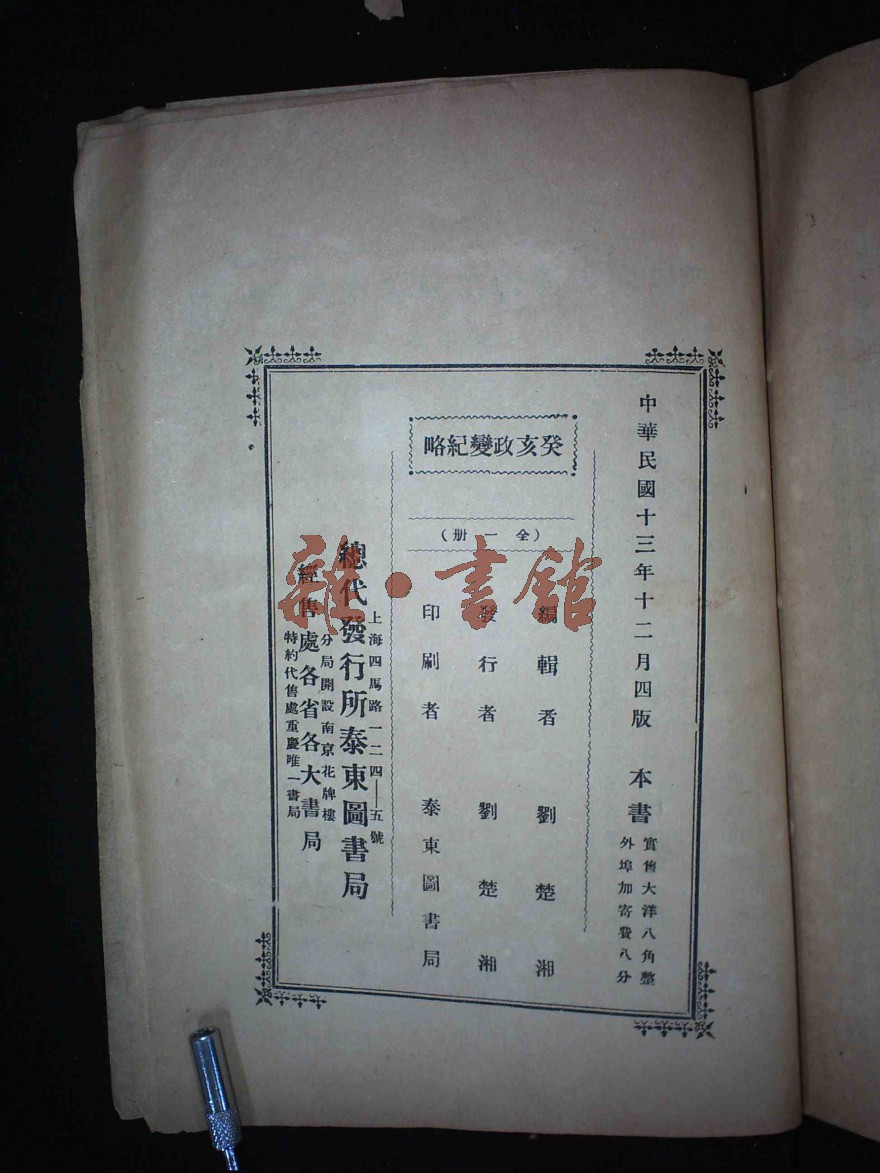 中華民國十三年十二月四版
本書
實售大洋八角整
外埠加寄費八分
癸亥政變紀略
（全一册）
編輯者 劉楚湘
發行者 劉楚湘
印刷者 泰東圖書局
上海四馬路一二四——五號
總代發行所泰東圖書局
分局開設南京花牌樓
經售處各省各大書局
特約代售處重慶唯一書局
雜·書館